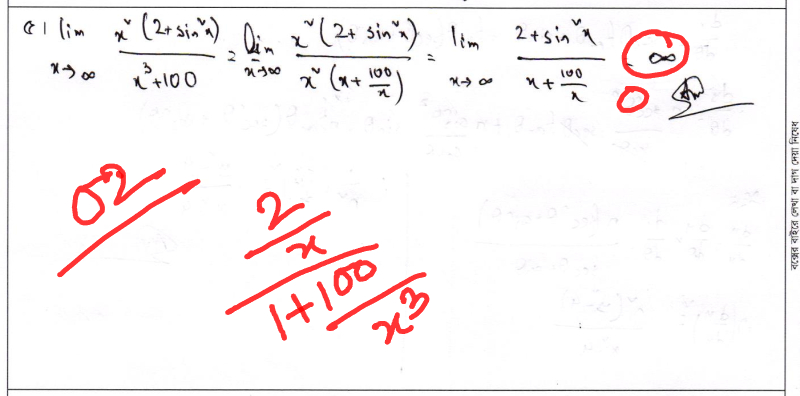 c) lim x→∞ x²(2+sin²x) / x³+100 = lim x→∞ x²(2+sin²x) / x²(x+100/x) = lim x→∞ 2+sin²x / x+100/x = ∞
0
02
2/x
1+100/x³
বক্সের বাইরে লেখা বা দাগ দেয়া নিষেধ